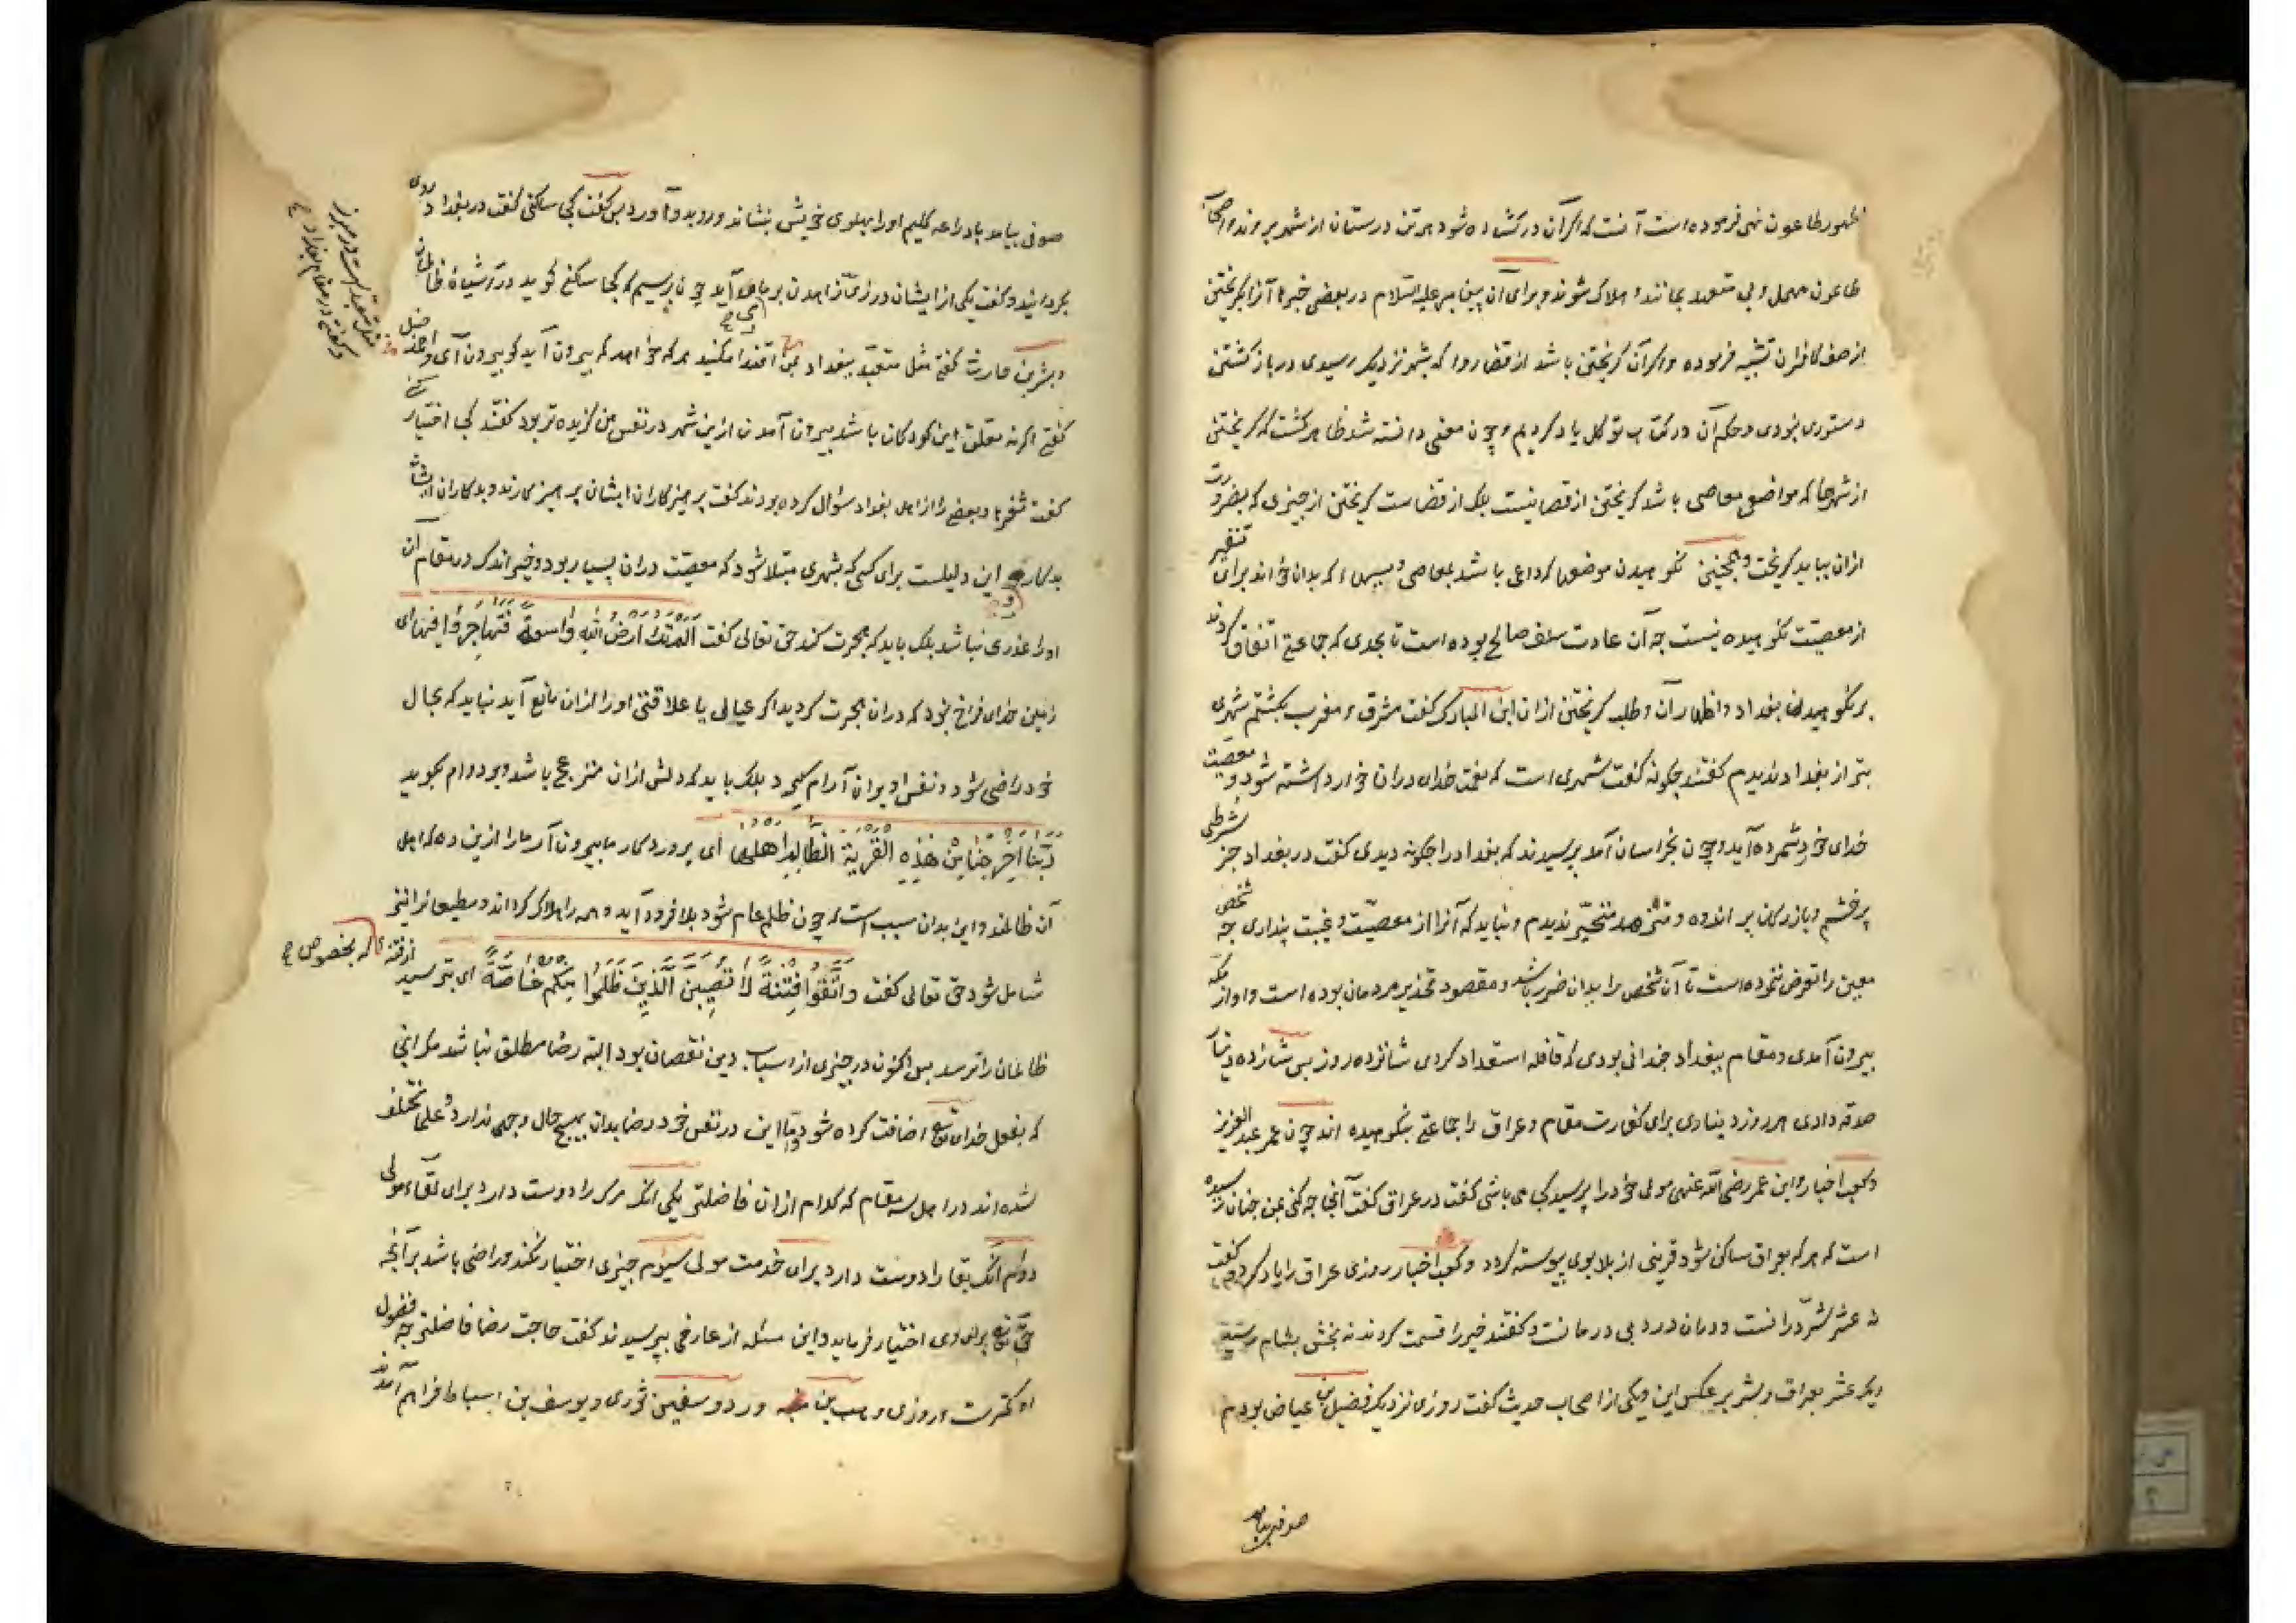 ظهور طاعون نهی فرموده است آنست که اگر آن در کشاده شود هر تن درستان از شهر بروند و اصحاب
طاعون مهمل و بی متعهد بمانند و هلاک شوند و برای آن پیغامبر علیه السلام در بعضی خبرها آنرا بگریختن
از صف کافران تشبیه فرموده و اگر آن گریختن باشد از قضا روا که بشهر نزدیک رسیدی در باز گشتن
دستوری نبودی و حکم آن در کتاب توکل یاد کردیم و چون معنی دانسته شد ظاهر گشت که گریختن
از شهرها که مواضع معاصی باشد گریختن از قضا نیست بلک از قضاست گریختن از چیزی که بضرورت
ازان بباید گریخت و همچنین نکوهیدن موضعها که داعی باشد بمعاصی و سببها که بدان خواند برای تنفیر
از معصیت نکوهیده نیست چه آن عادت سلف صالح بوده است تا بحدی که جماعتی اتفاق کردند
بر نکوهیدن بغداد و اظهار آن و طلب گریختن ازان ابن المبارک گفت مشرق و مغرب بگشتم شهری
بتر از بغداد ندیدم گفتند چگونه گفت شهری است که نعمت خدای دران خوار داشته شود و معصیت
خدای خرد شمرده آید و چون بخراسان آمد پرسیدند که بغداد را چگونه دیدی گفت در بغداد جز شرطی
پر خشم و بازرگان پر اندوه و متحیر ندیدم و نباید که آنرا از معصیت و غیبت پنداری چه شخصی
معین را تعرض نکرده است تا آن شخص را بدان ضرر باشد و مقصود تحذیر مردمان بوده است و او از مکه
بیرون آمدی و مقام ببغداد چندانی بودی که قافله استعداد کردی شانزده روز پس شانزده دینار
صدقه دادی هر روز دیناری برای کفارت مقام و عراق را جماعتی بنکوهیده اند چون عمر عبد العزیز
و کعب اخبار و ابن عمر رضی الله عنهی مولی خود را پرسید کجا می باشی گفت در عراق گفت آنجا چه کنی بمن چنان رسیده
است که هر که بعراق ساکن شود قرینی از بلا بوی پیوسته گردد و کعب اخبار روزی عراق را یاد کرد گفت
نه عشر شر درانست و دران درد بی درمانست و گفتند خیر را قسمت کردند نه بخش بشام رسید
دیگر عشر بعراق و شر بر عکس این و یکی از اصحاب حدیث گفت روزی نزدیک فضیل بن عیاض بودم
صوفی بیامد
صوفی بیامد با دراعه گلیم او را بپهلوی خویش بنشاند و رو بدو آورد پس گفت کجا ساکنی گفت در بغداد روی
بگردانید و گفت یکی از ایشان در زی زاهدان بر ما می آید چون پرسیم که کجا ساکنی گوید در آشیانه ظالمان
و بشر بن حارث گفتی مثل متعبد ببغداد بمن اقتدا مکنید هر که خواهد که بیرون آید گو بیرون آی و احمد حنبل
گفتی اگر نه تعلق این کودکان باشد بیرون آمدن ازین شهر در نفس من گزیده تر بود گفتند کجا اختیار کنی
گفت ثغرها و بعضی را از اهل بغداد سؤال کرده بودند گفت پرهیزگاران ایشان پرهیزگارند و بدکاران ایشان
بدکار این دلیلست برای کسی که بشهری مبتلا شود که معصیت دران بسیار بود و خیر اندک در مقام آن
او را عذری نباشد بلک باید که هجرت کند حق تعالی گفت الم تکن ارض الله واسعة فتهاجروا فیها ای
زمین خدای فراخ نبود که دران هجرت کردید اگر عیالی یا علاقتی او را ازان مانع آید نباید که بحال
خود راضی شود و نفس او بران آرام گیرد بلک باید که دلش ازان منزعج باشد و بر دوام گوید
ربنا اخرجنا من هذه القریة الظالم اهلها ای پروردگار ما بیرون آر ما را ازین ده که اهل
آن ظالمند و این بدان سبب است که چون ظلم عام شود بلا فرود آید و همه را هلاک گرداند و مطیعانرا نیز
شامل شود حق تعالی گفت واتقوا فتنة لا تصیبن الذین ظلموا منکم خاصة ای بترسید از فتنه
که بخصوص
ظالمان را نرسد پس اکنون در چیزی از اسباب دین نقصان بود البته رضا مطلق نباشد مگر ازانجا
که بفعل خدای تع اضافت کرده شود و اما این در نفس خود رضا بدان بهیچ حال وجهی ندارد و علما مختلف
شده اند در اهل سه مقام که کدام ازان فاضلتر یکی آنک مرگ را دوست دارد برای لقاء مولی
دوم آنک بقا را دوست دارد برای خدمت مولی سیوم چیزی اختیار نکند و راضی باشد بر آنچه
حق تع برای وی اختیار فرماید و این مسئله از عارفی بپرسیدند گفت صاحب رضا فاضلتر چه فضول
او کمترست و روزی وهیب بن ورد و سفین ثوری و یوسف بن اسباط فراهم آمدند